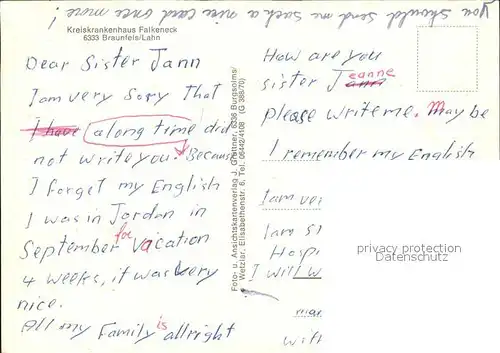 you should send me such a nice card once more!
Kreiskrankenhaus Falkeneck
6333 Braunfels/Lahn
Dear Sister Jann
I am very Sory that
I have along time did
not write you. Because
I forget my English
I was in Jordan in
September for vacation
4 weeks, it was very
nice.
All my Family is allright
Foto- u. Ansichtskartenverlag J. 6336 Burgsolms/
Wetzlar, Elisabethenstr. 6, Tel. 06442/4108 (G 388/70)
How are you
sister Jeanne
please write me. May be
I remember my English
I am ver
I are SI
Hospi
I will w
mar
will
privacy protection
Datenschutz